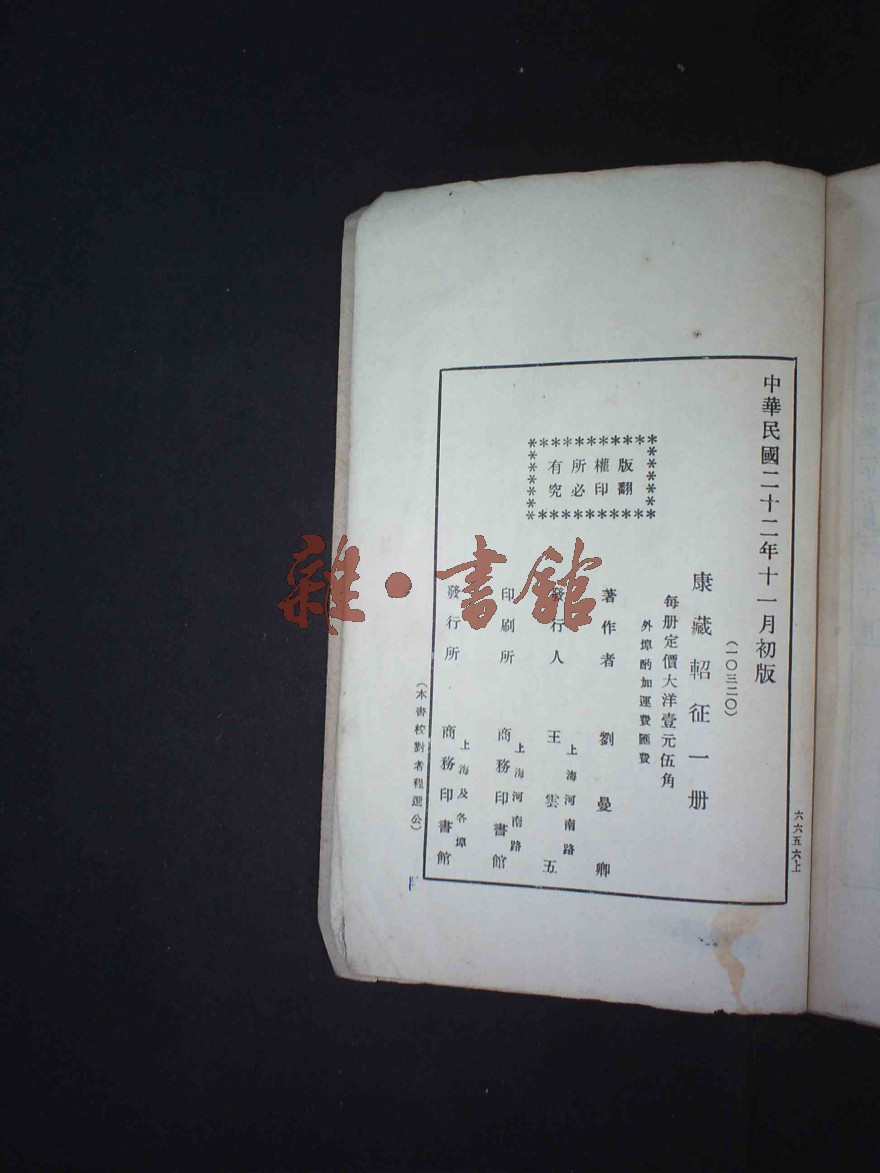 中華民國二十二年十一月初版
(一〇三二〇)
康藏軺征一册
每册定價大洋壹元伍角
外埠酌加運費匯費
版權所有
翻印必究
著作者 劉曼卿
發行人 王雲五
上海河南路
印刷所 商務印書館
上海河南路
發行所 商務印書館
上海及各埠
(本書校對者程選公)
六六五六上
雜·書館